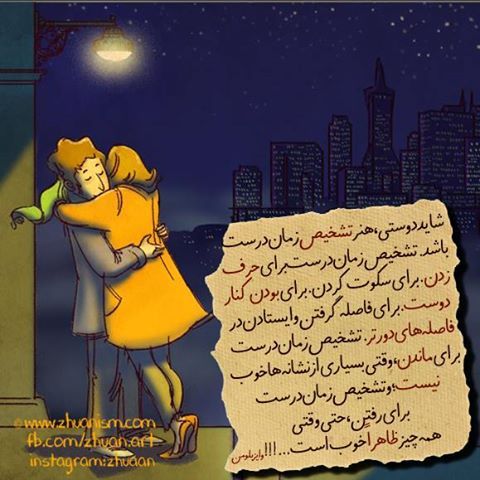 شاید دوستی، هنر تشخیص زمان درست
باشد. تشخیص زمان درست برای حرف
زدن. برای سکوت کردن. برای بودن کنار
دوست. برای فاصله گرفتن و ایستادن در
فاصله‌های دورتر. تشخیص زمان درست
برای ماندن، وقتی بسیاری از نشانه‌ها خوب
نیست؛ و تشخیص زمان درست
برای رفتن، حتی وقتی
همه چیز ظاهراً خوب است...!!!
©www.zhuanism.com
fb.com/zhuan.art
instagram:zhuaan